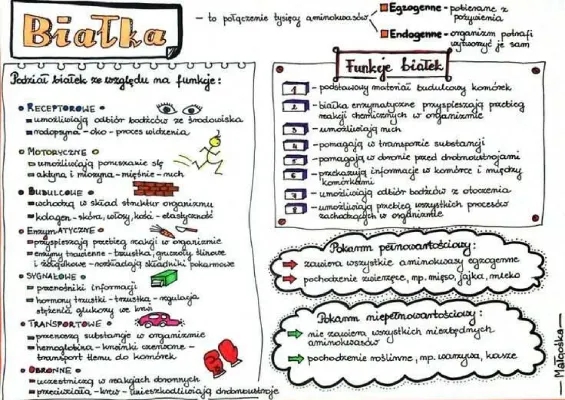 Białka
— to połączenie tysięcy aminokwasów
Egzogenne - pobierane z
pożywienia
Endogenne - organizm potrafi
wytworzyć je sam
Podział białek ze względu na funkcje:
RECEPTOROWE
umożliwiają odbiór bodźców ze środowiska
rodopsyna - oko - proces widzenia
MOTORYCZNE
umożliwiają poruszanie się
aktyna i miozyna - mięśnie - ruch
BUDULCOWE
wchodzą w skład struktur organizmu
kolagen - skóra, włosy, kości - elastyczność
ENZYMATYCZNE
przyspieszają przebieg reakcji w organizmie
enzymy trawienne - trzustka, gruczoły ślinowe
i żołądkowe - rozkładają składniki pokarmowe
SYGNAŁOWE
przenośniki informacji
hormony trzustki - trzustka - regulacja
stężenia glukozy we krwi
TRANSPORTOWE
przenoszą substancje w organizmie
hemoglobina - krwinki czerwone -
transport tlenu do komórek
OBRONNE
uczestniczą w reakcjach obronnych
przeciwciała - krew - unieszkodliwiają drobnoustroje
Funkcje białek
1 - podstawowy materiał budulcowy komórek
2 - białka enzymatyczne przyspieszają przebieg
reakcji chemicznych w organizmie
3 - umożliwiają ruch
4 - pomagają w transporcie substancji
5 - pomagają w obronie przed drobnoustrojami
6 - przekazują informacje w komórce i między
komórkami
7 - umożliwiają odbiór bodźców z otoczenia
8 - umożliwiają przebieg wszystkich procesów
zachodzących w organizmie
Pokarm pełnowartościowy:
zawiera wszystkie aminokwasy egzogenne
pochodzenie zwierzęce, np. mięso, jajka, mleko
Pokarm niepełnowartościowy:
nie zawiera wszystkich niezbędnych
aminokwasów
pochodzenie roślinne, np. warzywa, kasze
— Małgośka —